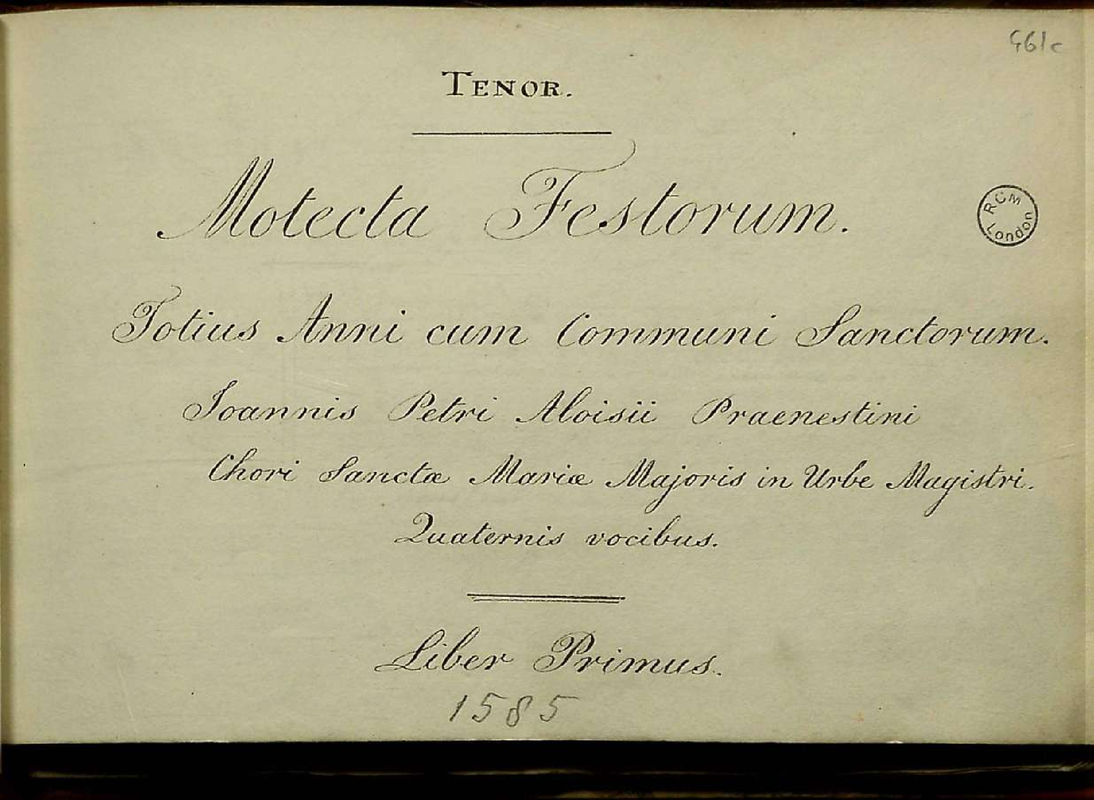 461c
TENOR.
Motecta Festorum.
RCM
London
Totius Anni cum Communi Sanctorum.
Joannis Petri Aloisii Praenestini
Chori Sanctæ Mariæ Majoris in Urbe Magistri.
Quaternis vocibus.
Liber Primus.
1585